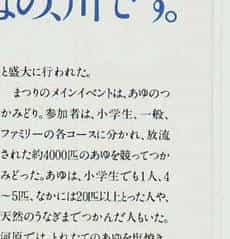 なの、川です。
と盛大に行われた。
まつりのメインイベントは、あゆのつ
かみどり。参加者は、小学生、一般、
ファミリーの各コースに分かれ、放流
された約4000匹のあゆを競ってつか
みどった。あゆは、小学生でも1人、4
～5匹、なかには20匹以上とった人や、
天然のうなぎまでつかんだ人もいた。
河原では、とれたてのあゆを塩焼き